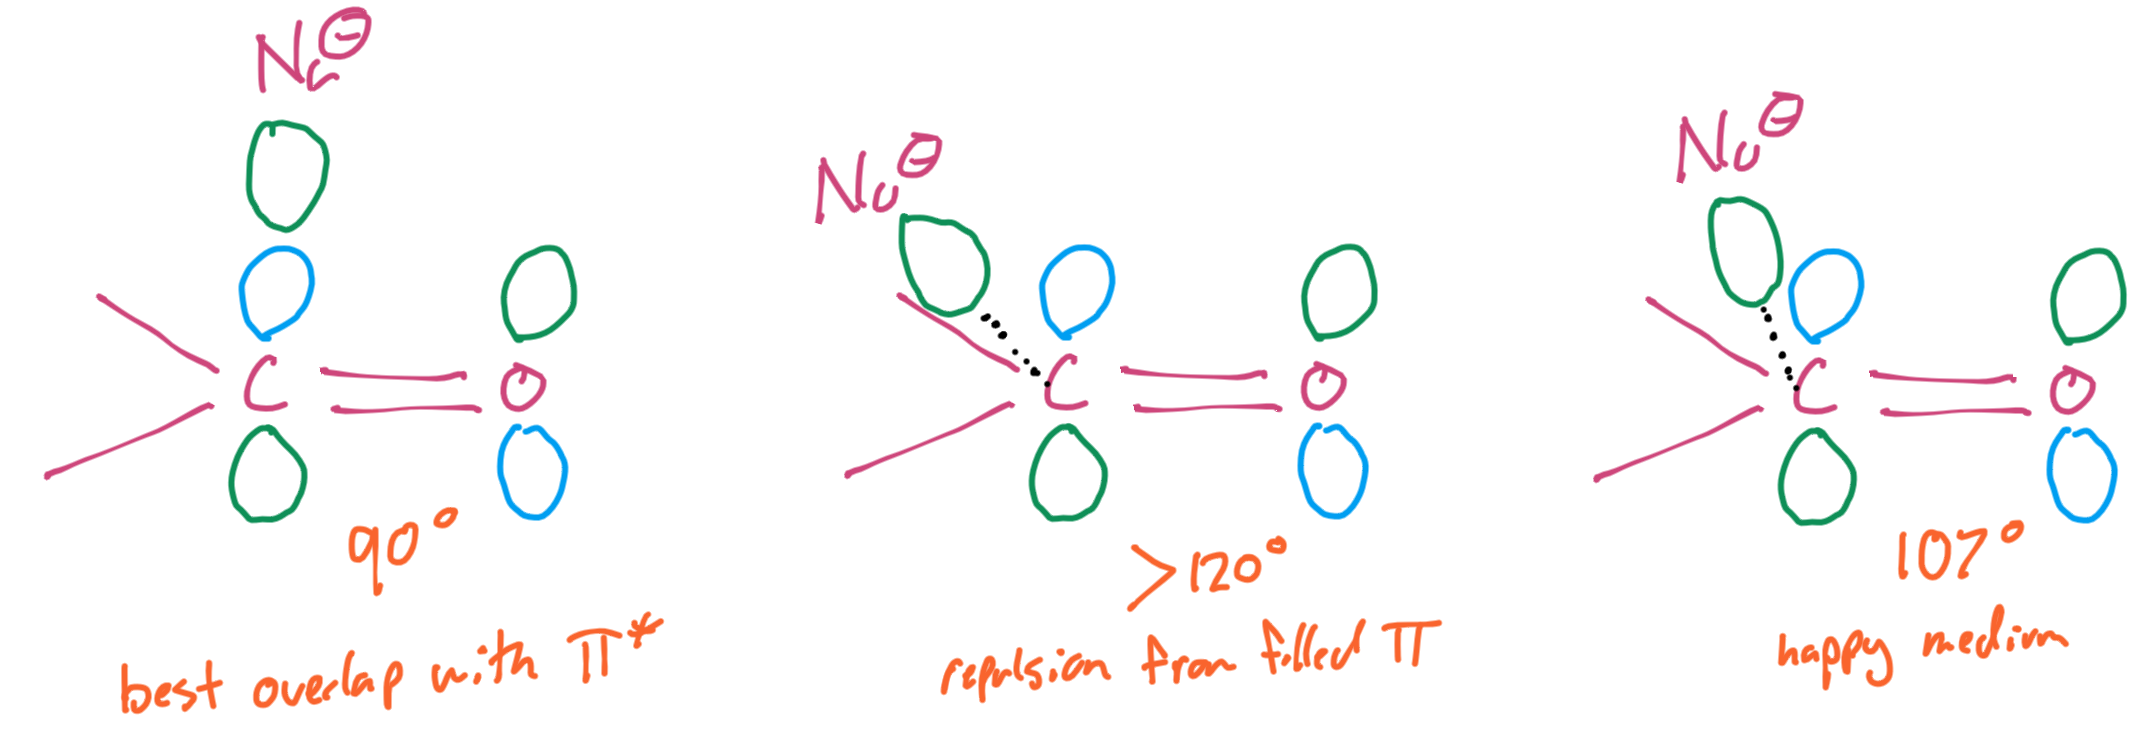 Nu⊖
C
O
90°
best overlap with π*
Nu⊖
C
O
>120°
repulsion from filled π
Nu⊖
C
O
107°
happy medium